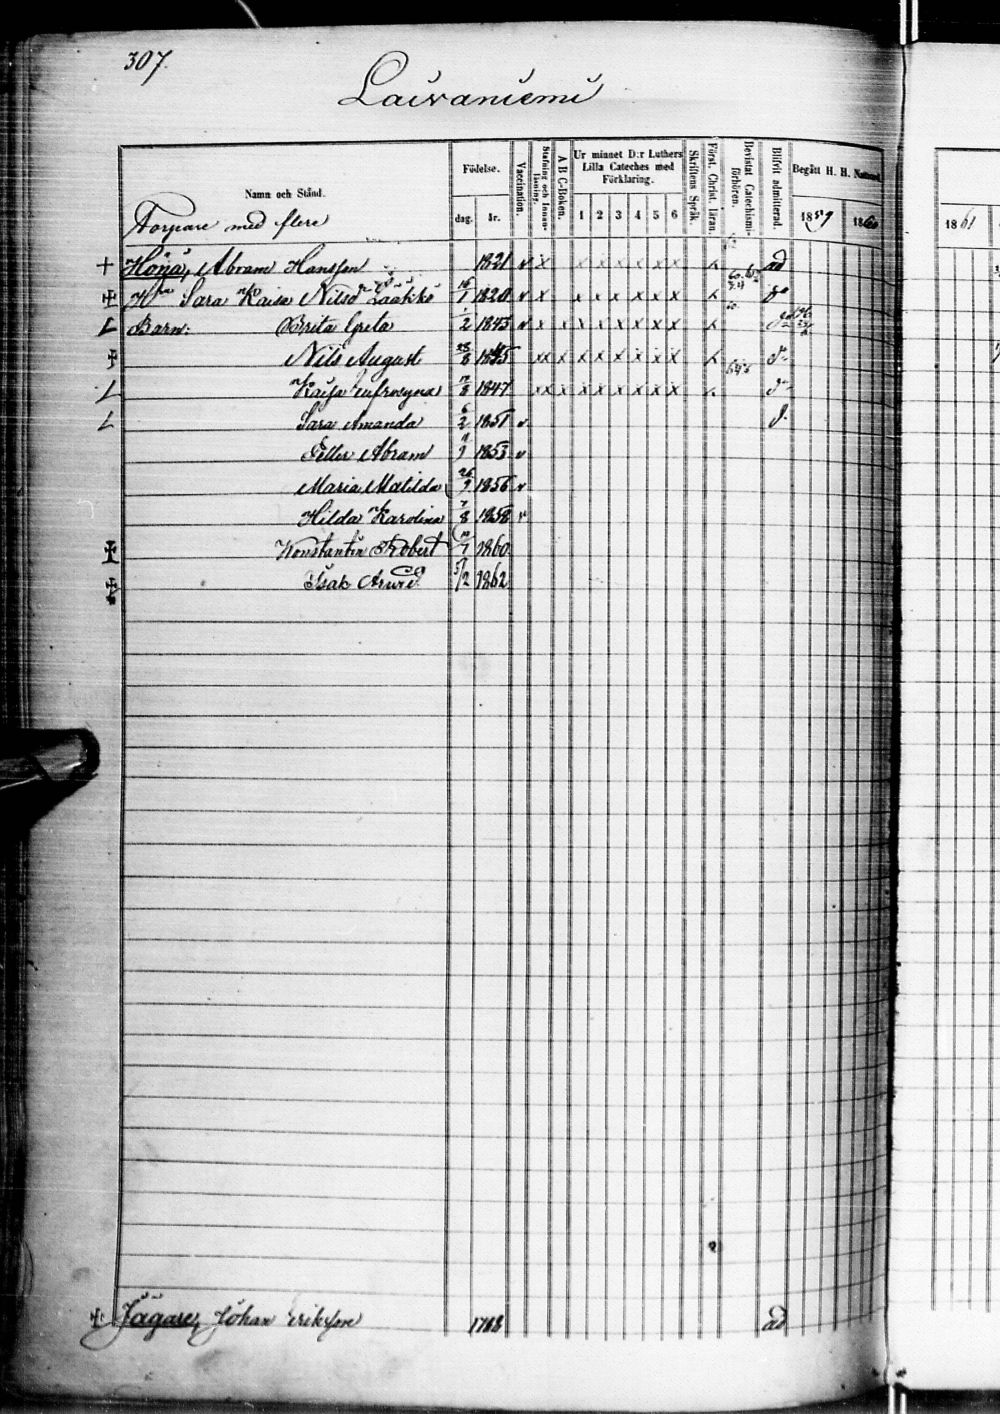 307.
Laivaniemi
Namn och Stånd.
Födelse.
dag. år.
Vaccination.
Stafning och Innanläsning.
A B C-Boken.
Ur minnet D:r Luthers
Lilla Cateches med
Förklaring.
1 2 3 4 5 6
Skriftens Språk.
Först. Christ. läran.
Bevistat Catechismiförhören.
Blifvit admitterad.
Begått H. H. Nattvard.
1859 1860
1861
Torpare med flere
+ Höijä, Abram Hansson 1821 v x x x x x x x x ad
Hu Sara Kaisa Nilsdr Laakko 16/1 1820 v x x x x x x x x do
L Barn: Brita Greta 1/2 1843 v x x x x x x x x x
Nils August 28/8 1845 x x x x x x x x x x do
L Kaisa Eufrosyna 1847 x x x x x x x x x x do
L Sara Amanda 6/2 1851 v d.
Petter Abram 1853 v
Maria Matilda 26/9 1856 v
Hilda Karolina 7/8 1858 v
Konstantin Robert 1860
Isak Arvid 5/2 1862
Jägare, Johan Eriksson 1788 ad